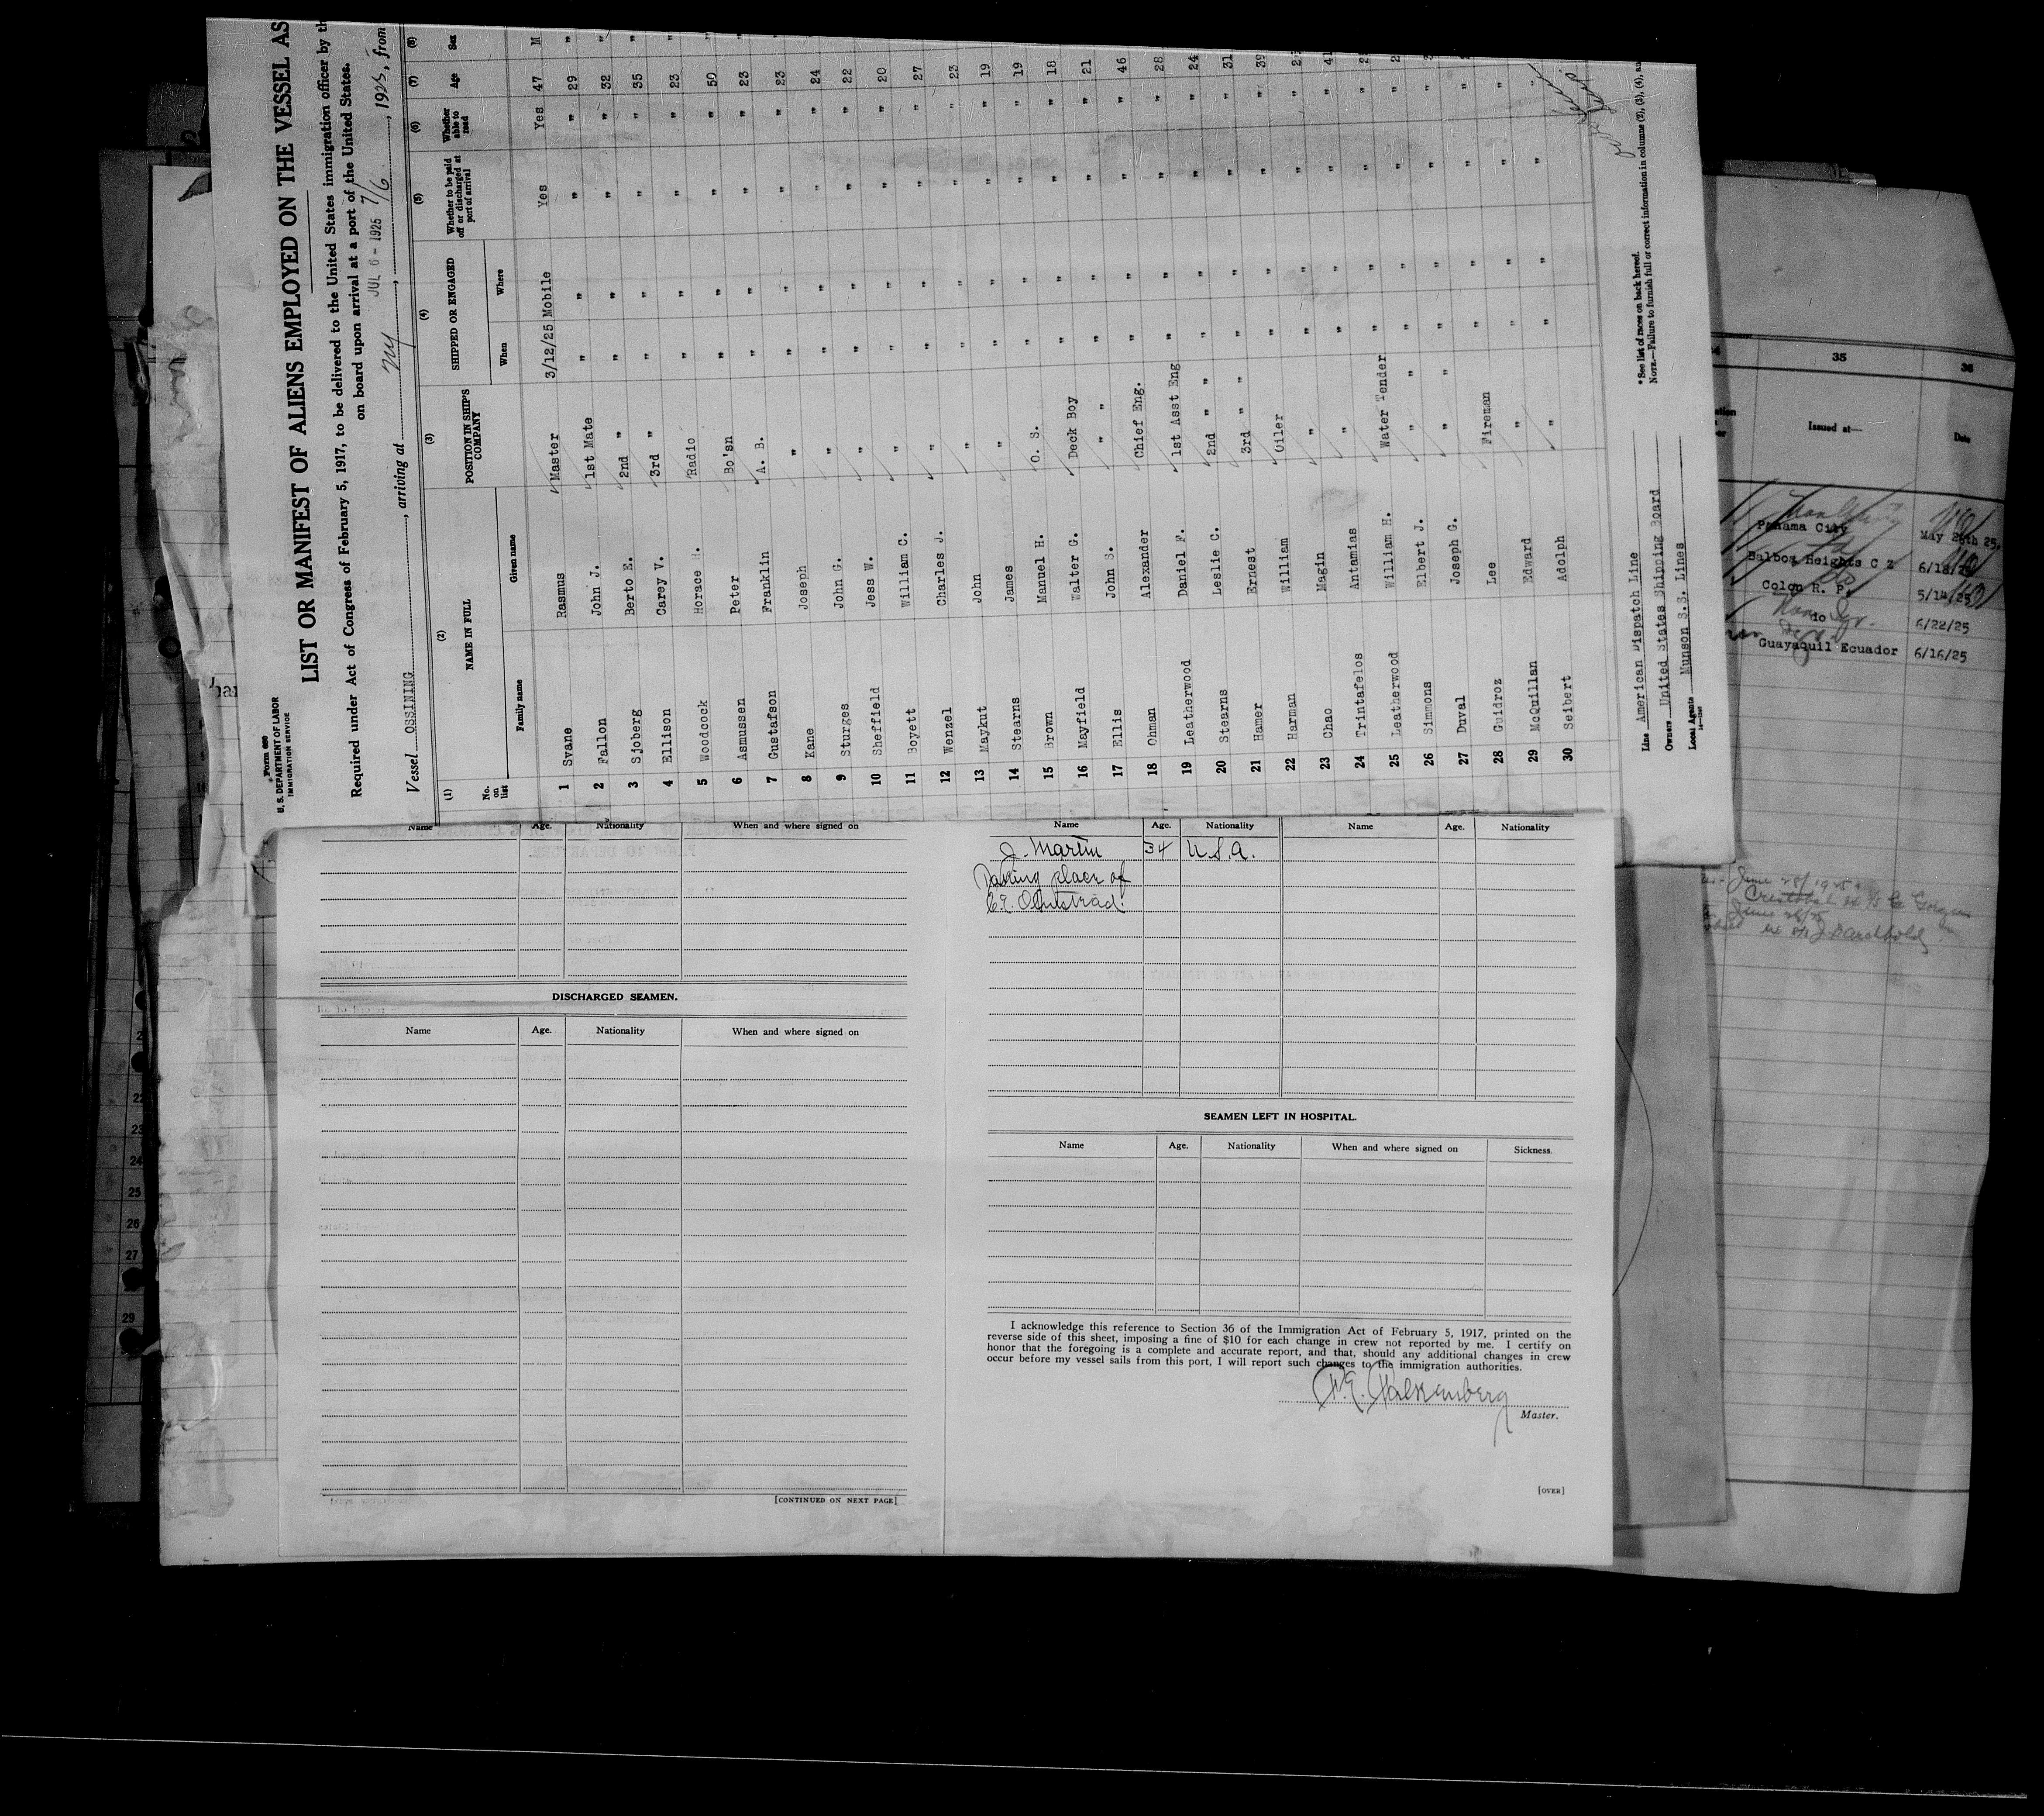 Form 680
U. S. DEPARTMENT OF LABOR
IMMIGRATION SERVICE
LIST OR MANIFEST OF ALIENS EMPLOYED ON THE VESSEL AS
Required under Act of Congress of February 5, 1917, to be delivered to the United States immigration officer by th
on board upon arrival at a port of the United States.
Vessel OSSINING, arriving at NY, JUL 6 - 1925 7/6, 1925, from
(1) (2) (3) (4) (5) (6) (7) (8)
No. on list NAME IN FULL POSITION IN SHIP'S COMPANY SHIPPED OR ENGAGED Whether to be paid off or discharged at port of arrival Whether able to read Age Sex
Family name Given name When Where
1 Svane Rasmus Master 3/12/25 Mobile Yes Yes 47 M
2 Fallon John J. 1st Mate " " " " 29 "
3 Sjoberg Berto E. 2nd " " " " " 32 "
4 Ellison Carey V. 3rd " " " " " 35 "
5 Woodcock Horace H. Radio " " " " 23 "
6 Asmussen Peter Bo'sn " " " " 50 "
7 Gustafson Franklin A. B. " " " " 23 "
8 Kane Joseph " " " " " 23 "
9 Sturges John G. " " " " " 24 "
10 Sheffield Jess W. " " " " " 22 "
11 Boyett William C. " " " " " 20 "
12 Wenzel Charles J. " " " " " 27 "
13 Maykut John " " " " " 23 "
14 Stearns James " " " " " 19
15 Brown Manuel H. O. S. " " " " 19
16 Mayfield Walter G. Deck Boy " " " " 18
17 Ellis John S. " " " " " " 21
18 Ohman Alexander Chief Eng. " " " " 46
19 Leatherwood Daniel F. 1st Asst Eng " " " " 28
20 Stearns Leslie C. 2nd " " " " " " 24
21 Hamer Ernest 3rd " " " " " " 31
22 Harman William Oiler " " " " 39
23 Chao Magin " " " " "
24 Trintafelos Antamias " " " " "
25 Leatherwood William H. Water Tender " " " "
26 Simmons Elbert J. " " " " "
27 Duval Joseph G. " " " " "
28 Guidroz Lee Fireman " " " "
29 McQuillan Edward " " " " "
30 Seibert Adolph " " " " "
Line American Dispatch Line
Owners United States Shipping Board
Local Agents Munson S.S. Lines
*See list of races on back hereof.
NOTE.—Failure to furnish full or correct information in columns (2), (3), (4), an
35 36
Issued at— Date
Panama City May 25th 25.
Balboa Heights C Z
Colon R. P. 5/14/25
do 6/22/25
Guayaquil Ecuador 6/16/25
June 25/1925
Cristobal
Name Age. Nationality When and where signed on
DISCHARGED SEAMEN.
Name Age. Nationality When and where signed on
[CONTINUED ON NEXT PAGE]
Name Age. Nationality Name Age. Nationality
J. Martin 34 U.S.A.
Taking place of
SEAMEN LEFT IN HOSPITAL.
Name Age. Nationality When and where signed on Sickness.
I acknowledge this reference to Section 36 of the Immigration Act of February 5, 1917, printed on the
reverse side of this sheet, imposing a fine of $10 for each change in crew not reported by me. I certify on
honor that the foregoing is a complete and accurate report, and that, should any additional changes in crew
occur before my vessel sails from this port, I will report such changes to the immigration authorities.
Master.
[OVER]
22
23
24
25
26
27
29